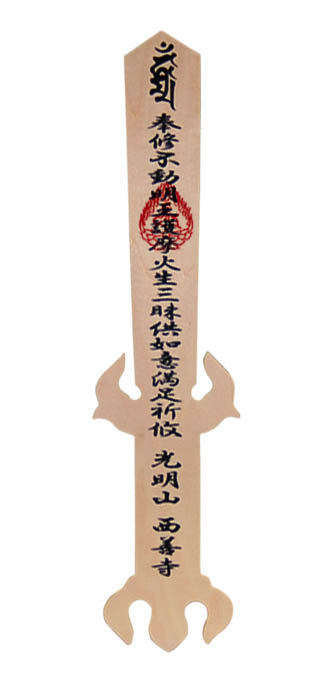 奉修不動明王護摩火生三昧供如意満足祈攸 光明山 西善寺